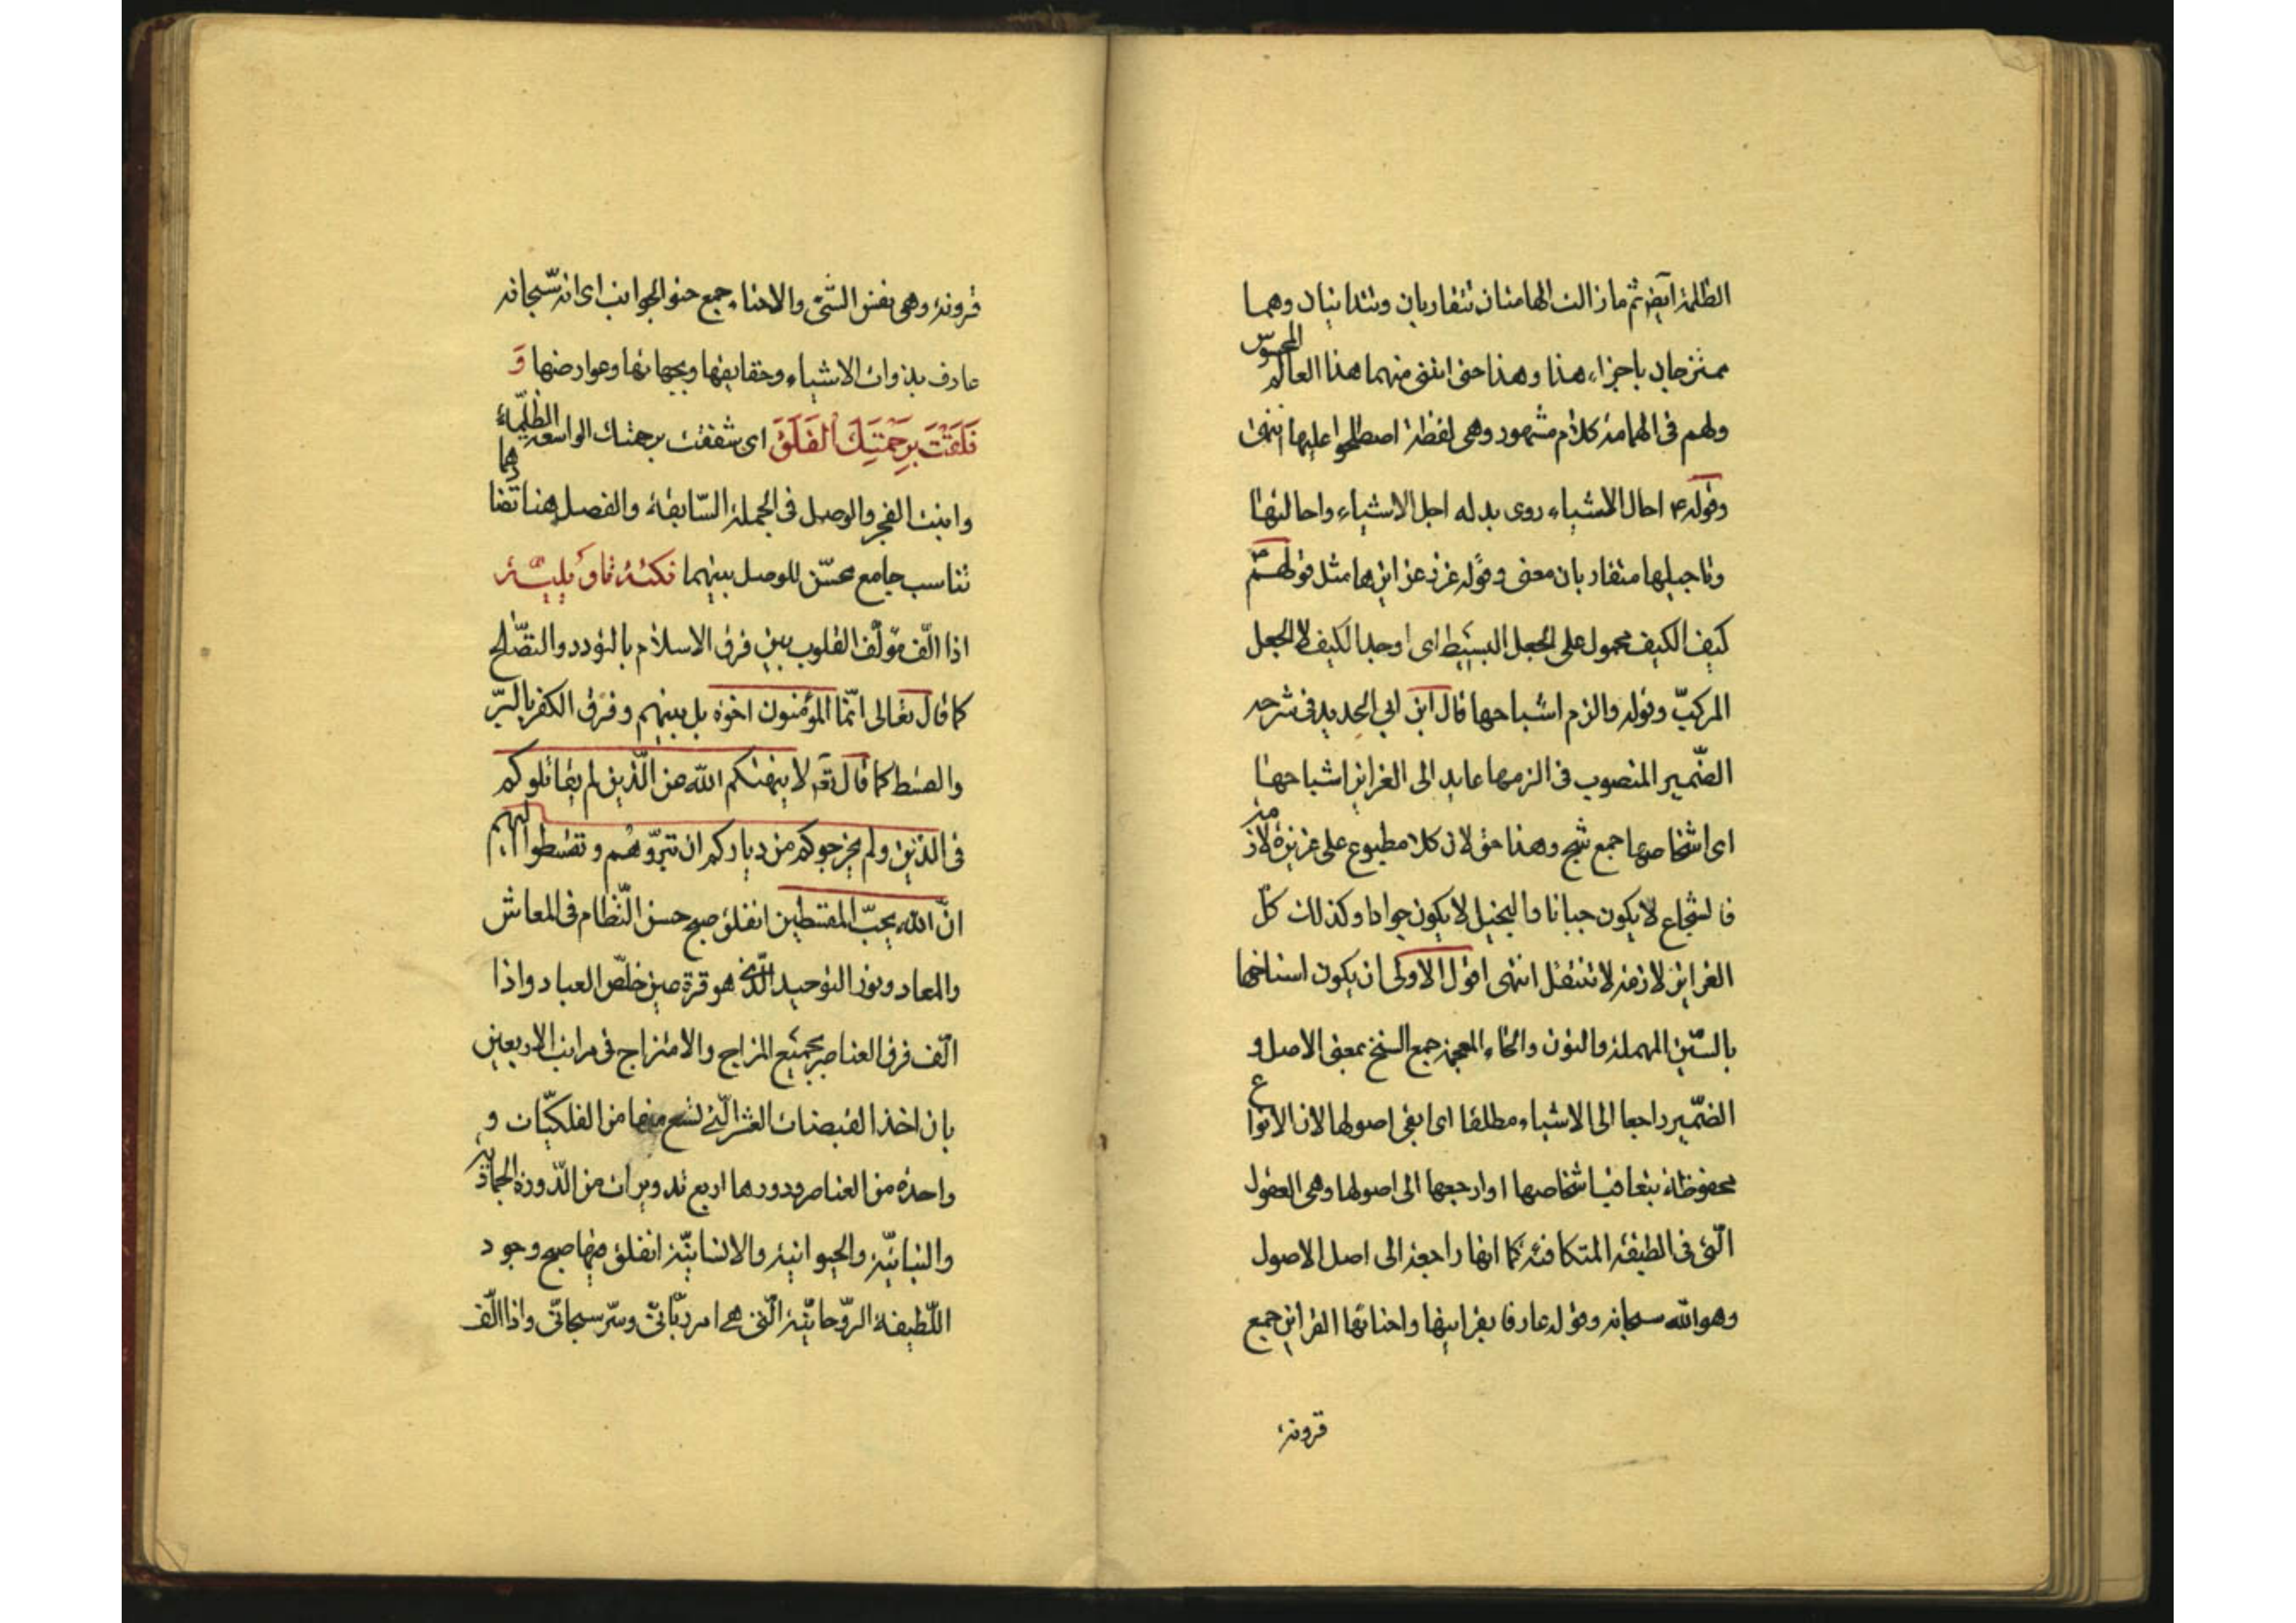 الظلمة ايضا ثم ما زالت الهامتان تتقاربان وتتدانيان وهما
ممتزجان باجزاء هذا وهذا حتى انتنى منهما هذا العالم المحسوس
ولهم فى الهامة كلام مشهور وهى لفظة اصطلحوا عليها انتهى
وقوله ع احال الاشياء روى بدله اجل الاشياء واحالتها
وتاجيلها متقاربان معنى وقوله غرز غرايزها مثل قولهم
كيف الكيف محمول على الجعل البسيط اى اوجد الكيف لا الجعل
المركب وقوله والزم اشباحها قال ابن ابى الحديد فى شرحه
الضمير المنصوب فى الزمها عايد الى الغرايز اشباحها
اى اشخاصها جمع شبح وهذا حق لان كلا مطبوع على غريزة لازمة
فالشجاع لا يكون جبانا والبخيل لا يكون جوادا وكذلك كل
الغرايز لازمة لا تنتقل انتهى اقول الاولى ان يكون اسناخها
بالسّين المهملة والنون والخاء المعجمة جمع السنخ بمعنى الاصل و
الضّمير راجعا الى الاشياء مطلقا اى ابقى اصولها لان الانواع
محفوظة بتعاقب اشخاصها او ارجعها الى اصولها وهى العقول
الّتى فى الطبقة المتكافئة كما انها راجعة الى اصل الاصول
وهو الله سبحانه وقوله عارفا بقراينها واحنائها القراين جمع
قرونة
قرونة وهى نفس الشئ والاحناء جمع حنو الجوانب اى انه سّبحانه
عارف بذوات الاشياء وحقايقها وبجهاتها وعوارضها وَ
فَلَقْتَ بِرَحْمَتِكَ الْفَلَقَ اى شققت برحمتك الواسعة الظلماء
وابنت الفجر والوصل فى الجملة السّابقة والفصل هنا تضادهما
تناسب جامع محسّن للوصل بينهما نكتة تاويلية
اذا الّف مؤلّف القلوب بين فرق الاسلام بالتودد والتصّلح
كما قال تعالى انّما المؤمنون اخوة بل بينهم وفرق الكفر بالبّر
والقسط كما قال تع لا ينهيكم الله عن الّذين لم يقاتلوكم
فى الدّين ولم يخرجوكم من دياركم ان تبرّوهم وتقسطوا اليهم
انّ الله يحبّ المقسطين انفلق صبح حسن النّظام فى المعاش
والمعاد ونور التوحيد الّذى هو قرة عين خلّص العباد واذا
الّف فرق العناصر بجميع المزاج والامتزاج فى مراتب الاربعين
بان اخذ القبضات العشر الّتى تسع منها من الفلكيّات و
واحدة من العناصر ودورها اربع تدويرات من الدّورة الجمادية
والنباتيّة والحيوانية والانسانيّة انفلق منها صبح وجود
اللّطيفة الرّوحانيّة الّتى هى امر ربّانىّ وسّر سبحانىّ واذا الّف